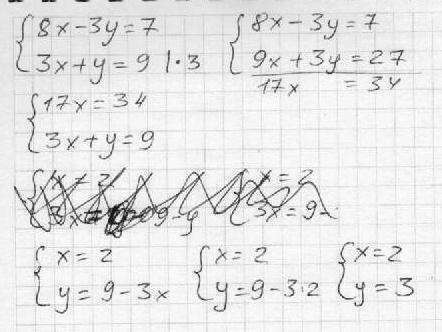 8x-3y=7
3x+y=9 |·3
8x-3y=7
9x+3y=27
17x =34
17x=34
3x+y=9
x=2
3x=9-
x=2
y=9-3x
x=2
y=9-3·2
x=2
y=3